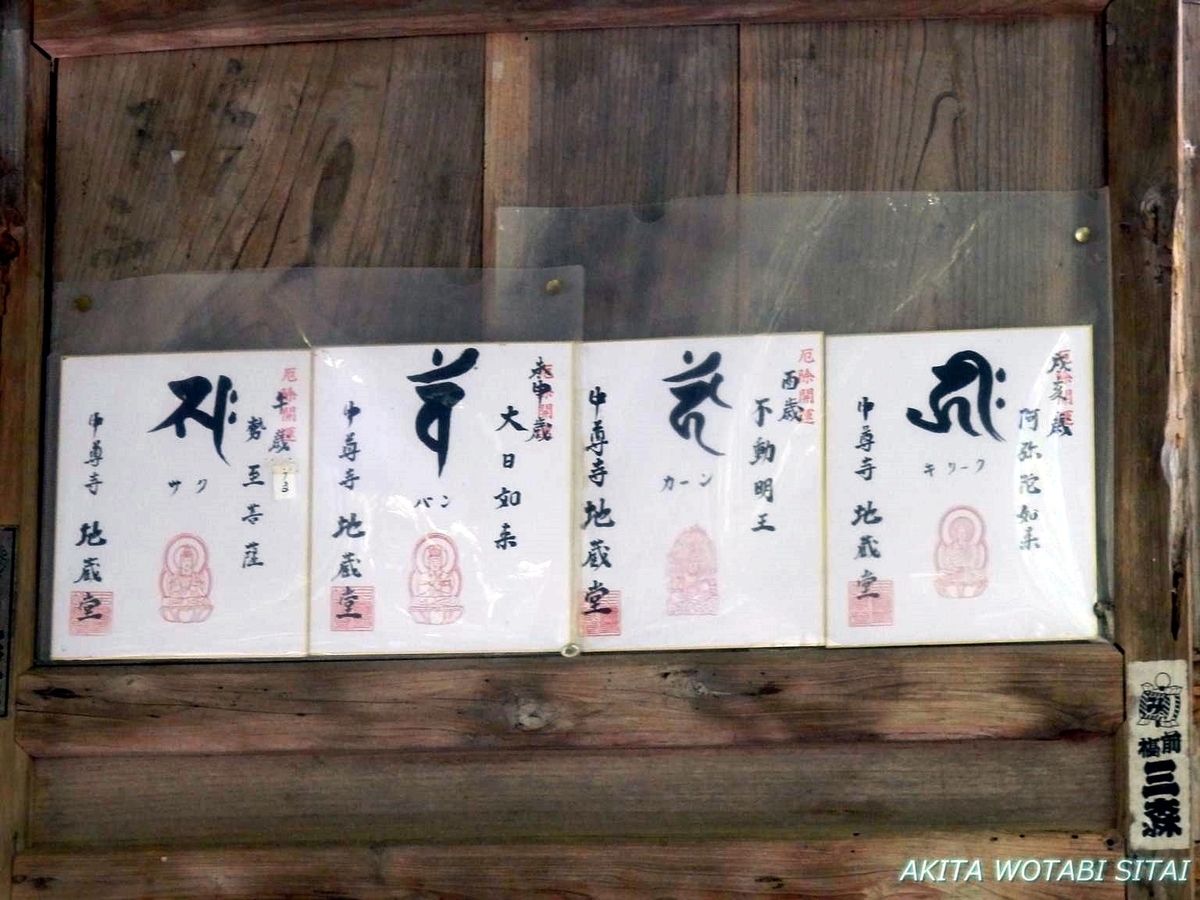 厄除開運
戌亥歳
阿弥陀如来
キリーク
中尊寺 地蔵堂
厄除開運
酉歳
不動明王
カーン
中尊寺 地蔵堂
厄除開運
未申歳
大日如来
バン
中尊寺 地蔵堂
厄除開運
午歳
勢至菩薩
サク
中尊寺 地蔵堂
三森
AKITA WOTABI SITAI